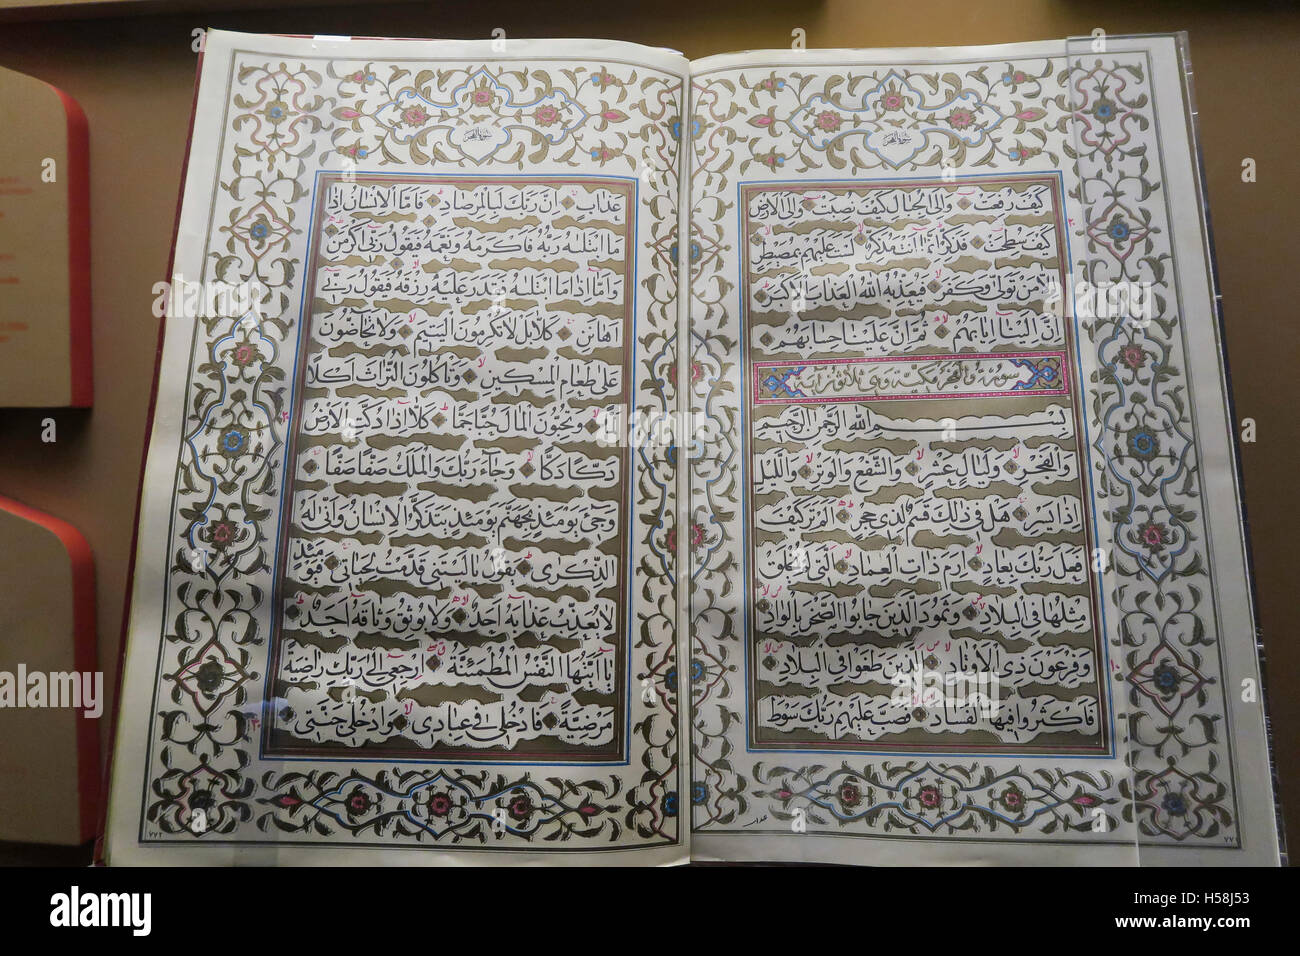 سورة الفجر
كَيْفَ رُفِعَتْ وَإِلَى الْجِبَالِ كَيْفَ نُصِبَتْ وَإِلَى الْأَرْضِ
كَيْفَ سُطِحَتْ فَذَكِّرْ إِنَّمَا أَنْتَ مُذَكِّرٌ لَسْتَ عَلَيْهِمْ بِمُصَيْطِرٍ
إِلَّا مَنْ تَوَلَّى وَكَفَرَ فَيُعَذِّبُهُ اللَّهُ الْعَذَابَ الْأَكْبَرَ
إِنَّ إِلَيْنَا إِيَابَهُمْ ثُمَّ إِنَّ عَلَيْنَا حِسَابَهُمْ
سورة والفجر مكية وهي ثلاثون آية
بِسْمِ اللَّهِ الرَّحْمَنِ الرَّحِيمِ
وَالْفَجْرِ وَلَيَالٍ عَشْرٍ وَالشَّفْعِ وَالْوَتْرِ وَاللَّيْلِ
إِذَا يَسْرِ هَلْ فِي ذَلِكَ قَسَمٌ لِذِي حِجْرٍ أَلَمْ تَرَ كَيْفَ
فَعَلَ رَبُّكَ بِعَادٍ إِرَمَ ذَاتِ الْعِمَادِ الَّتِي لَمْ يُخْلَقْ
مِثْلُهَا فِي الْبِلَادِ وَثَمُودَ الَّذِينَ جَابُوا الصَّخْرَ بِالْوَادِ
وَفِرْعَوْنَ ذِي الْأَوْتَادِ الَّذِينَ طَغَوْا فِي الْبِلَادِ
فَأَكْثَرُوا فِيهَا الْفَسَادَ فَصَبَّ عَلَيْهِمْ رَبُّكَ سَوْطَ
عذاب
سورة الفجر
عَذَابٍ إِنَّ رَبَّكَ لَبِالْمِرْصَادِ فَأَمَّا الْإِنْسَانُ إِذَا
مَا ابْتَلَاهُ رَبُّهُ فَأَكْرَمَهُ وَنَعَّمَهُ فَيَقُولُ رَبِّي أَكْرَمَنِ
وَأَمَّا إِذَا مَا ابْتَلَاهُ فَقَدَرَ عَلَيْهِ رِزْقَهُ فَيَقُولُ رَبِّي
أَهَانَنِ كَلَّا بَلْ لَا تُكْرِمُونَ الْيَتِيمَ وَلَا تَحَاضُّونَ
عَلَى طَعَامِ الْمِسْكِينِ وَتَأْكُلُونَ التُّرَاثَ أَكْلًا
لَمًّا وَتُحِبُّونَ الْمَالَ حُبًّا جَمًّا كَلَّا إِذَا دُكَّتِ الْأَرْضُ
دَكًّا دَكًّا وَجَاءَ رَبُّكَ وَالْمَلَكُ صَفًّا صَفًّا
وَجِيءَ يَوْمَئِذٍ بِجَهَنَّمَ يَوْمَئِذٍ يَتَذَكَّرُ الْإِنْسَانُ وَأَنَّى لَهُ
الذِّكْرَى يَقُولُ يَا لَيْتَنِي قَدَّمْتُ لِحَيَاتِي فَيَوْمَئِذٍ
لَا يُعَذِّبُ عَذَابَهُ أَحَدٌ وَلَا يُوثِقُ وَثَاقَهُ أَحَدٌ
يَا أَيَّتُهَا النَّفْسُ الْمُطْمَئِنَّةُ ارْجِعِي إِلَى رَبِّكِ رَاضِيَةً
مَرْضِيَّةً فَادْخُلِي فِي عِبَادِي وَادْخُلِي جَنَّتِي
alamy
Image ID: H58J53
www.alamy.com